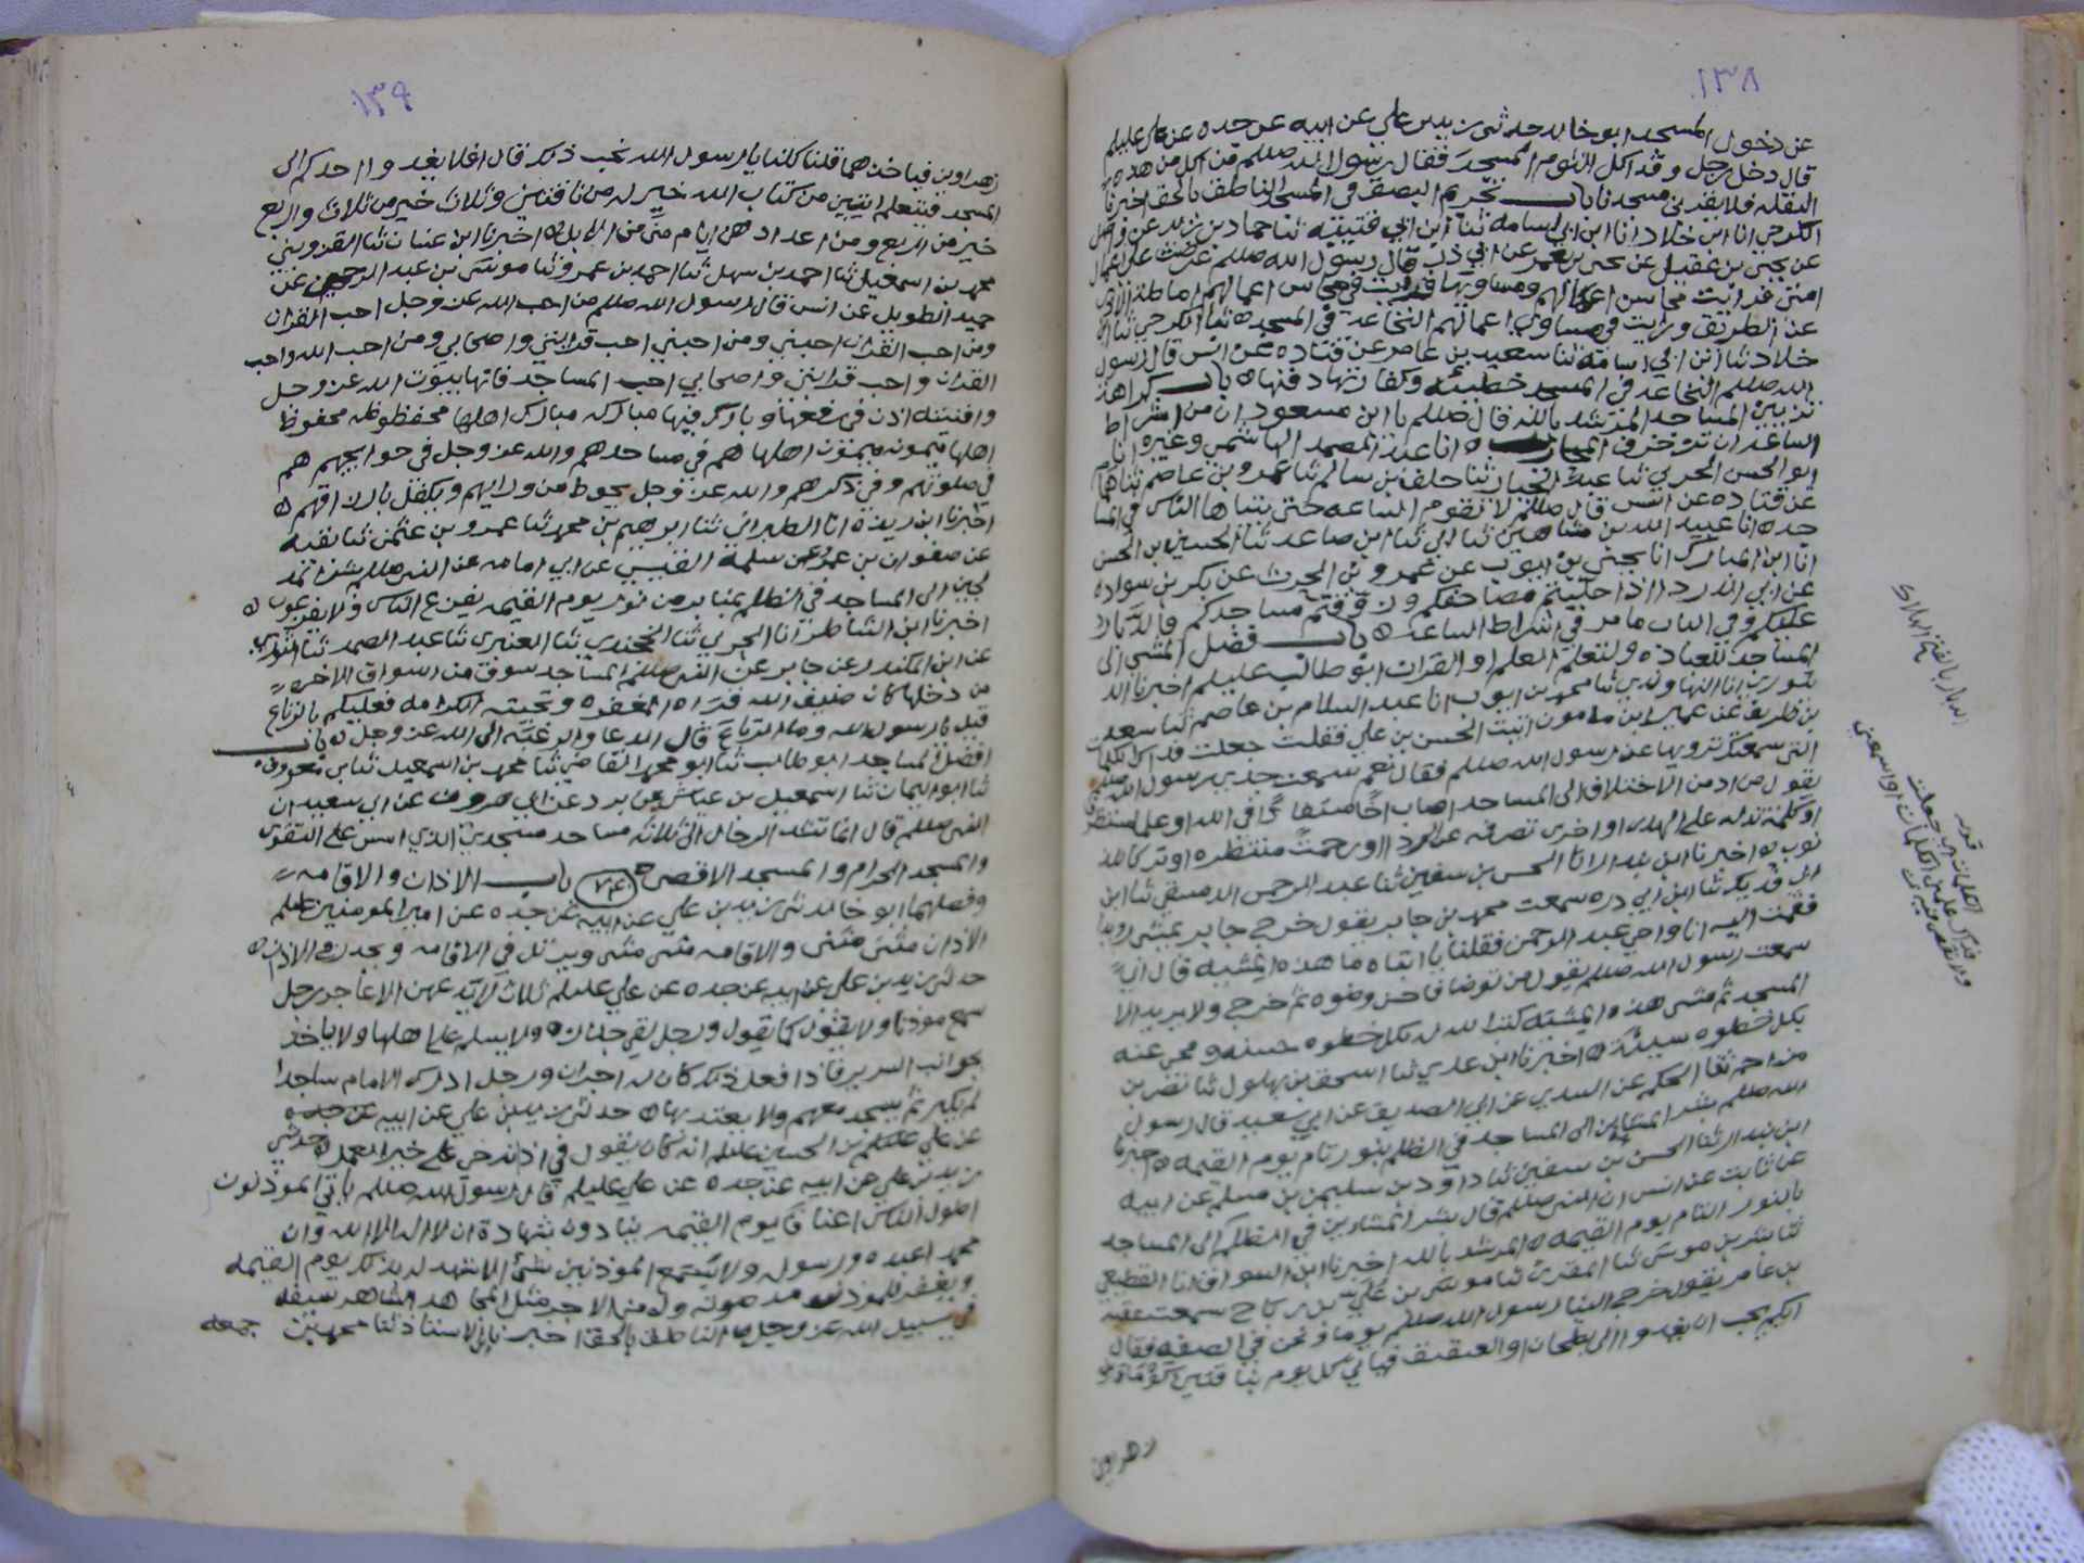 ١٣٨
عن دخول المسجد ابو خالد حدثني زيد بن علي عن ابيه عن جده عن علي عليلم
قال دخل رجل وقد اكل الثوم المسجد فقال رسول الله صللم من اكل من هذه
البقله فلا يقربن مسجدنا باب تحريم البصق في المسجد الناطق بالحق اخبرنا
الكرجي انا ابن خلاد انا ابن ابي اسامه ثنا ابن ابي قتيبه ثنا حماد بن زيد عن واصل
عن يحيى بن عقيل عن يحيى بن يعمر عن ابي ذر قال رسول الله صللم عرضت علي اعمال
امتي فرايت محاسن اعمالهم ومساويها فرايت في محاسن اعمالهم اماطة الاذى
عن الطريق ورايت في مساوي اعمالهم النخاعة في المسجد ثنا الكرجي ثنا ابن
خلاد ثنا ابن ابي اسامة ثنا سعيد بن عامر عن قتاده عن انس قال رسول
الله صللم النخاعه في المسجد خطيئه وكفارتها دفنها باب كراهة
تزيين المساجد المرشد بالله قال صللم يا ابن مسعود ان من اشراط
الساعه ان تزخرف انا عبد الصمد الهاشمي وغيره انا
ابو الحسن الحربي ثنا ثنا خلف بن سالم ثنا عمرو بن عاصم ثنا همام
عن قتاده عن انس قال صللم لا تقوم الساعه حتى يتباها الناس في المسا
جد انا عبيد الله بن شاهين ثنا ابي ثنا ابن صاعد ثنا الحسين بن الحسن
انا ابن المبارك انا يحيى بن ايوب عن عمرو بن الحرث عن بكر بن سواده
عن ابي الدرداء اذا حليتم مصاحفكم وزوقتم مساجدكم فالدبار
عليكم وفي الباب ما مر في اشراط الساعه باب فضل المشي الى
المساجد للعباده ولتعلم العلم او القران ابو طالب عليلم اخبرنا
انا النهاوندي ثنا محمد بن ايوب انا عبد السلام بن عاصم ثنا سعد
بن طريف عن عمير ابن مامون اتيت الحسن بن علي فقلت جعلت فداك الكلمات
التي سمعتك ترويها عن رسول الله صللم فقال نعم سمعت جدي رسول الله صللم
يقول من ادمن الاختلاف الى المساجد اصاب اخا مستفادا في الله او علما مستطرفا
او كلمة تدله على الهدى او اخرى تصرفه عن الردا او رحمة منتظره او ترك الذ
نوب اخبرنا ابن بندار انا الحسن بن سفين ثنا عبد الرحمن الدمشقي ثنا ابن
ابي فديك ثنا ابن ابي دره سمعت محمد بن جابر يقول خرج جابر يمشي رويدا
فقمت اليه انا واخي عبد الرحمن فقلنا يا ابتاه ما هذه المشيه قال اني
سمعت رسول الله صللم يقول من توضا فاحسن وضوه ثم خرج ولا يريد الا
المسجد ثم مشى هذه المشيه كتب الله له بكل خطوه حسنه ومحى عنه
بكل خطوه سيئة اخبرنا ابن عدي ثنا اسحق بن بهلول ثنا نضر بن
مزاحم ثنا الحكم عن السدي عن ابي الصديق عن ابي سعيد قال رسول
الله صللم بشر المشايين الى المساجد في الظلم بنور تام يوم القيمه اخبرنا
ابن بندار ثنا الحسن بن سفين ثنا داود بن سليمن بن مسلم عن ابيه
عن ثابت عن انس ان النبي صللم قال بشر المشاين في الظلم الى المساجد
بالنور التام يوم القيمه المرشد بالله اخبرنا ابن السواق انا القطيعي
ثنا بشر بن موسى ثنا المقرئ ثنا موسى بن علي بن رباح سمعت عقبه
بن عامر يقول خرج الينا رسول الله صللم يوما ونحن في الصفه فقال
ايكم يحب ان يغدو الى بطحان او العقيق فياتي كل يوم بناقتين كوماوين
زهراوين
الدبار بالفتح الهلاك
قوله
الكلمات اي جعلت
فداك علمني الكلمات او اسمعني
١٣٩
زهراوين فياخذهما قلنا كلنا يا رسول الله نحب ذلك قال افلا يغدوا احدكم الى
المسجد فيتعلم ايتين من كتاب الله خير له من ناقتين وثلاث خير من ثلاث واربع
خير من اربع ومن اعدادهن من الابل اخبرنا ابن عنبان ثنا القزويني
محمد بن اسمعيل ثنا احمد بن سهل ثنا احمد بن عمرو ثنا موسى بن عبد الرحمن عن
حميد الطويل عن انس قال رسول الله صللم من احب الله عز وجل احب القران
ومن احب القران احبني ومن احبني احب قرابتي واصحابي ومن احب الله واحب
القران واحب قرابتي واصحابي احب المساجد فانها بيوت الله عز وجل
وافنيته اذن في رفعها وبارك فيها مباركه مبارك اهلها محفظوظه محفوظ
اهلها ميمونه ميمون اهلها هم في مساجدهم والله عز وجل في حوايجهم هم
في صلوتهم وفي ذكرهم والله عز وجل يحوط من ورايهم ويكفل بارزاقهم
اخبرنا ابن ريذه انا الطبراني ثنا ابرهيم بن محمد ثنا عمرو بن عثمن ثنا بقيه
عن صفوان بن عمرو عن سلمة القيسي عن ابي امامه عن النبي صللم بشر المد
لجين الى المساجد في الظلم بمنابر من نور يوم القيمه يفزع الناس ولا يفزعون
اخبرنا ابن الشاطر انا الحربي ثنا الخجندي ثنا العنبري ثنا عبد الصمد ثنا الثوري
عن ابن المنكدر عن جابر عن النبي صللم المساجد سوق من اسواق الاخره
من دخلها كان ضيف الله قراه المغفره وتحيته الكرامه فعليكم بالرتاع
قيل يا رسول الله وما الرتاع قال الدعا والرغبة الى الله عز وجل باب
افضل المساجد ابو طالب ثنا ابو محمد القاضي ثنا محمد بن اسمعيل ثنا
ثنا ابو اليمان ثنا اسمعيل بن عياش عن برد عن ابي هرون عن ابي سعيد ان
النبي صللم قال انما تشد الرحال الى ثلاثه مساجد مسجدي الذي اسس على التقوى
والمسجد الحرام والمسجد الاقصى ٧٤ باب الاذان والاقامه
وفصلهما ابو خالد ثني زيد بن علي عن ابيه عن جده عن امير المومنين عليلم
الاذان مثنى مثنى والاقامه مثنى مثنى ويرتل في الاقامه ويحدر في الاذان
حدثني زيد بن علي عن ابيه عن جده عن علي عليلم ثلاث لا يدعهن الا عاجز رجل
سمع موذنا ولا يقول كما يقول ورجل لقي جنازه ولا يسلم على اهلها ولا ياخذ
بجوانب السرير فاذا فعل ذلك كان له اجران ورجل ادرك الامام ساجدا
لم يكبر ثم يسجد معهم ولا يعتد بها حدثني زيد بن علي عن ابيه عن جده
عن علي عليلم بن الحسين عليلم انه كان يقول في اذانه حي على خير العمل حدثني
زيد بن علي عن ابيه عن جده عن علي عليلم قال رسول الله صللم ياتي الموذنون
اطول الناس اعناقا يوم القيمه ينادون بشهادة ان لا اله الا الله وان
محمدا عبده ورسوله ولا يسمع الموذنين شئ الا شهد له بذلك يوم القيمه
ويغفر للموذن مد صوته وله من الاجر مثل المجاهد الشاهر سيفه
في سبيل الله عز وجل الناطق بالحق اخبرنا الاستاذ ثنا محمد بن جمعه